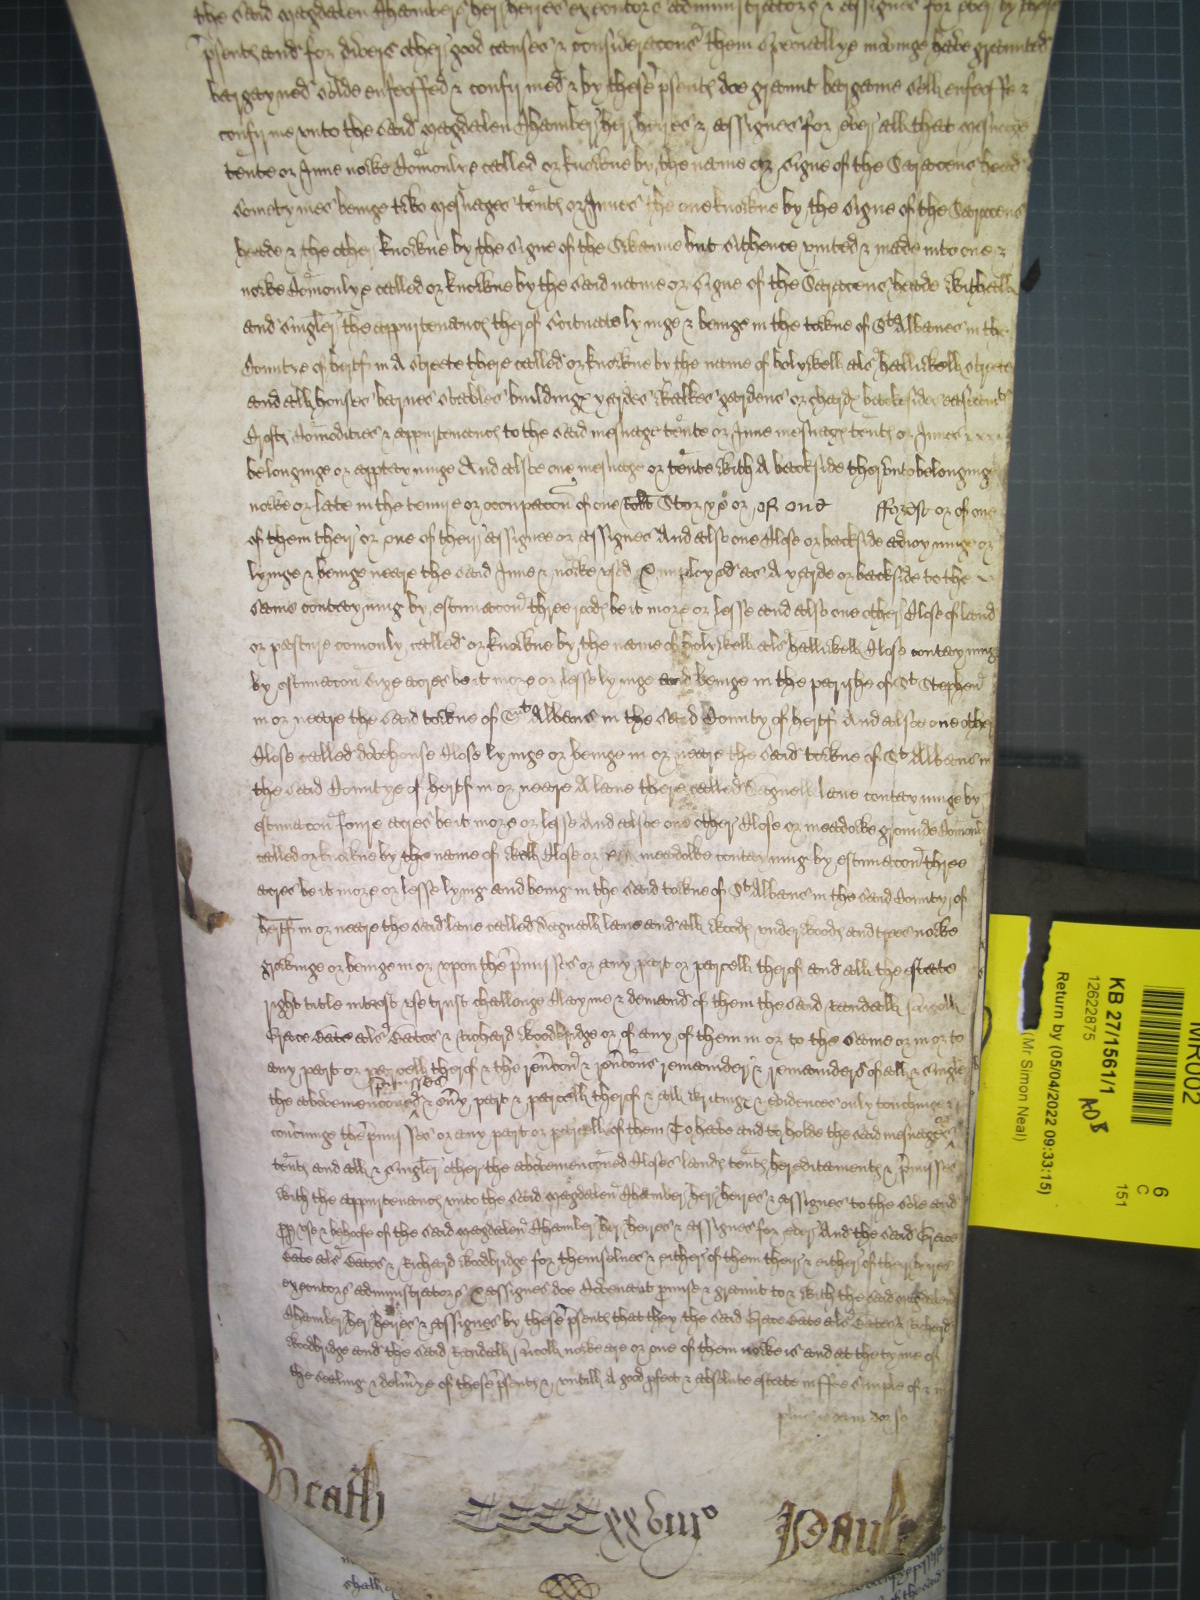 the said Magdalen Chambers her heires executors administrators & assignes for ever by these
psents and for divers other good causes & consideracons them specially moving have graunted
bargayned solde enfeoffed & confirmed & by these psents doe graunt bargaine sell enfeoffe &
confirme unto the said Magdalen Chamber her heires & assignes for ever all that mesuage
tente or Inne nowe Comonlye called or knowne by the name or signe of the Saracens head
sometymes beinge two mesuages tents or Innes the one knowne by the signe of the Saracens
heade & the other knowne by the signe of the Swanne but sithence united & made into one &
nowe Comonlye called or knowne by the said name or signe of the Saracens heade withall
and singler the appurtenancs therof scituate lyinge & beinge in the towne of St Albanes in the
Countye of hertf in A streete there called or knowne by the name of holywell als halliwell streete
and all houses barnes stables buildings yardes walkes gardens orchards backesides easiamts
Crofts Comodities & appurtenancs to the said mesuage tente or Inne mesuags tents or Innes
belonginge or apptayninge And alsoe one mesuage or tente with A backside thervnto belonginge
nowe or late in the tenure or occupacon of one Storye or of one fforest or of one
of them their or one of their assignee or assignes And also one Close or backside adioyninge or
lyinge & beinge neare the said Inne & nowe used & imployed as A yarde or backside to the
same contayning by estimacon three roods be it more or lesse and also one other Close of land
or pasture comonly called or knowne by the name of holywell als halliwell Close contayning
by estimacon sixe acres be it more or lesse lyinge and beinge in the parishe of St Stephen
in or neare the said towne of St Albans in the said County of hertf And alsoe one other
Close called dovehouse Close lyinge or beinge in or neare the said towne of St Albans in
the said Countye of hertf in or neare A lane there called lane contayninge by
estimacon foure acres be it more or lesse And alsoe one other Close or meadowe grounde Comonly
called or knowne by the name of Well Close or meadowe contayning by estimacon three
acres be it more or lesse lying and being in the said towne of St Albans in the said County of
hertf in or neare the said lane called lane and all woods underwoods and trees nowe
growinge or beinge in or upon the pmisses or any part or parcell therof and all the estate
right title interest use trust challenge Clayme & demaund of them the said Randall
Grace Bate als Bates & Richard Woodbridge or of any of them in or to the same or in or to
any part or parcell therof & the revcon & revcons remainder & remainders of all & singler
the abovemenconed pmisses & evy part & parcell therof & all writings & evidences only touchinge &
concninge the pmisses or any part or parcell of them To have and to holde the said mesuages
tents and all & singler other the abovemenconed Closes lands tents hereditaments & pmisses
with the appurtenancs unto the said Magdalen Chamber her heires & assignes to the sole and
ppr use & behoofe of the said Magdalen Chamber her heires & assignes for ever And the said Grace
Bate als Bates & Richard Woodbridge for themselves & either of them their & either of their heires
executors administrators & assignes doe Covenant pmise & graunt to & with the said Magdalen
Chamber her heires & assignes by these psents that they the said Grace Bate als Bates & Richard
Woodbridge and the said Randall nowe are or one of them nowe is and at the tyme of
the sealing & delivye of these psents & untill A good pfect & absolute estate in ffee simple of & in
Heath CCCCxxviijo Paul
MR002
6
C
151
KB 27/1561/1
12622875
ADB
Return by (05/04/2022 09:33:15)
(Mr Simon Neal)